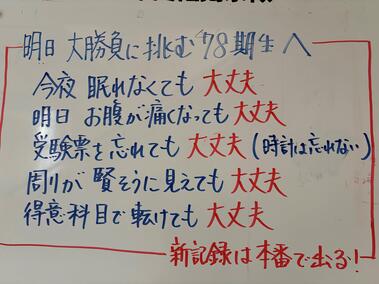 明日 大勝負に挑む 78期生へ
今夜 眠れなくても 大丈夫
明日 お腹が痛くなっても 大丈夫
受験票を忘れても 大丈夫 (時計は忘れない)
周りが 賢そうに見えても 大丈夫
得意科目で転けても 大丈夫
新記録は本番で出る!